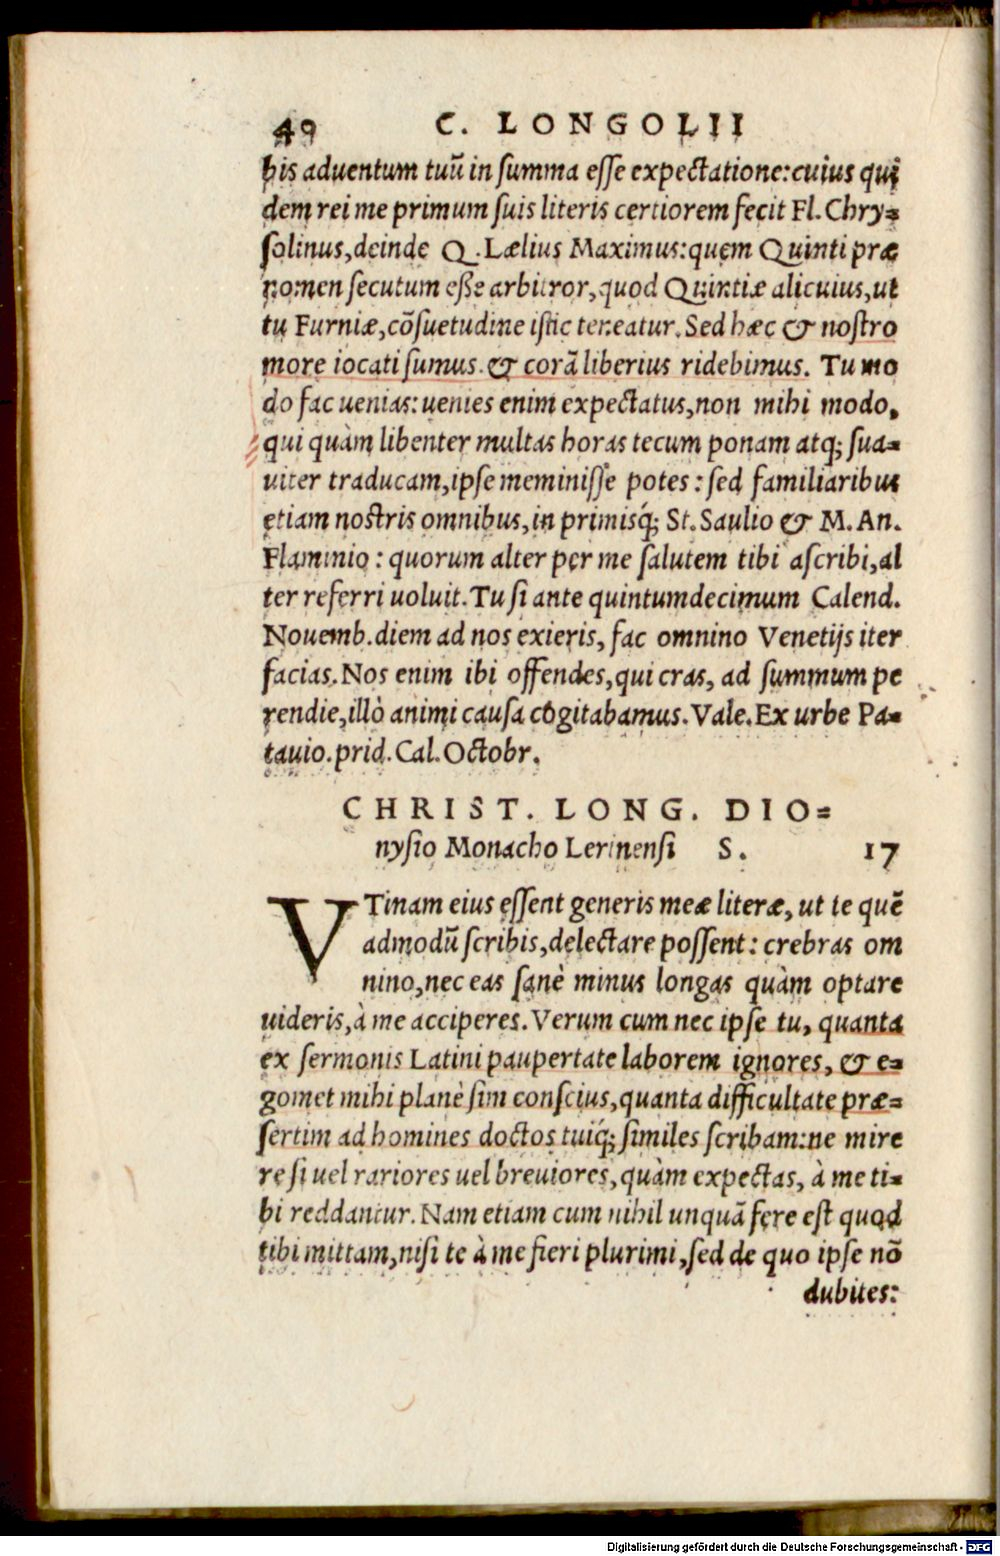 40 C. LONGOLII
bis aduentum tuũ in summa esse expectatione: cuius qui
dem rei me primum suis literis certiorem fecit Fl. Chry=
solinus, deinde Q. Lælius Maximus: quem Quinti præ
nomen secutum esse arbitror, quod Quintiæ alicuius, ut
tu Furniæ, cõsuetudine istic teneatur. Sed hæc & nostro
more iocati sumus. & corã liberius ridebimus. Tu mo
do fac uenias: uenies enim expectatus, non mihi modo,
qui quàm libenter multas horas tecum ponam atq; sua=
uiter traducam, ipse meminisse potes: sed familiaribus
etiam nostris omnibus, in primisq́; St. Saulio & M. An.
Flaminio: quorum alter per me salutem tibi ascribi, al
ter referri uoluit. Tu si ante quintumdecimum Calend.
Nouemb. diem ad nos exieris, fac omnino Venetijs iter
facias. Nos enim ibi offendes, qui cras, ad summum pe
rendie, illò animi causa cogitabamus. Vale. Ex urbe Pa=
tauio. prid. Cal. Octobr.
CHRIST. LONG. DIO=
nysio Monacho Lerinensi S. 17
VTinam eius essent generis meæ literæ, ut te quẽ
admodũ scribis, delectare possent: crebras om
nino, nec eas sanè minus longas quàm optare
uideris, à me acciperes. Verum cum nec ipse tu, quanta
ex sermonis Latini paupertate laborem ignores, & e=
gomet mihi planè sim conscius, quanta difficultate præ=
sertim ad homines doctos tuiq́; similes scribam: ne mire
re si uel rariores uel breuiores, quàm expectas, à me ti=
bi reddantur. Nam etiam cum nihil unquã fere est quod
tibi mittam, nisi te à me fieri plurimi, sed de quo ipse nõ
dubites:
Digitalisierung gefördert durch die Deutsche Forschungsgemeinschaft - DFG